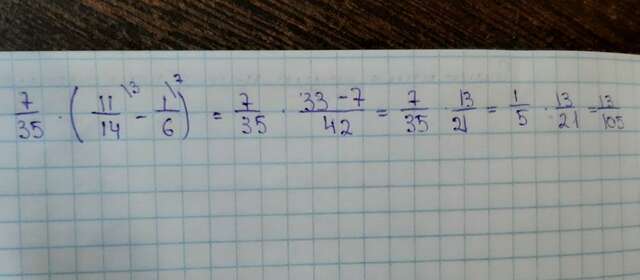 7/35 · (11\3/14 - 1\7/6) = 7/35 · 33-7/42 = 7/35 · 13/21 = 1/5 · 13/21 = 13/105